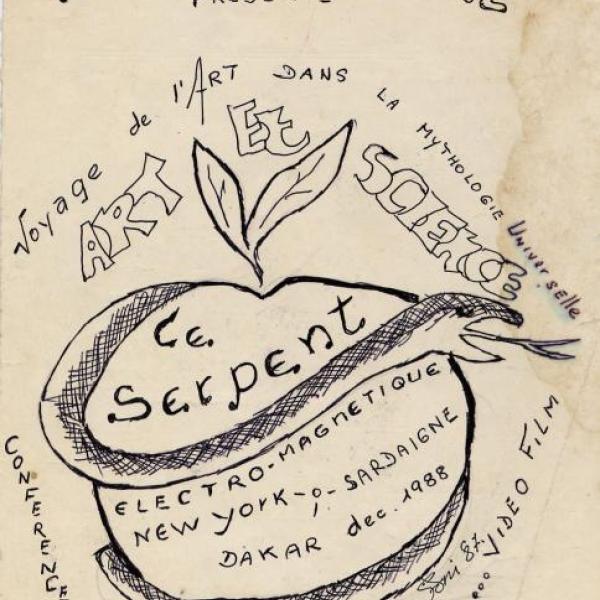 Voyage de l'ART DANS LA MYTHOLOGIE Universelle
ART ET SCIENCE
Le
Serpent
ELECTRO-MAGNETIQUE
NEW YORK-o- SARDAIGNE
DAKAR dec. 1988
CONFERENCE
VIDEO FILM
87